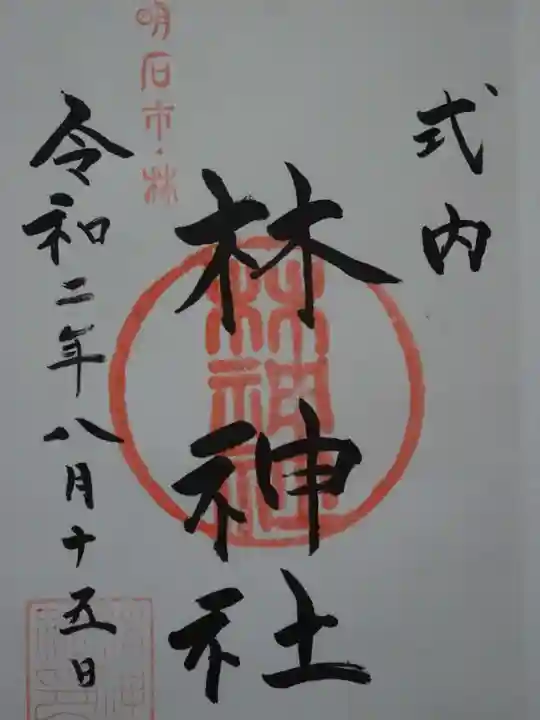 式内
林神社
林神社
明石市・林
令和二年八月十五日